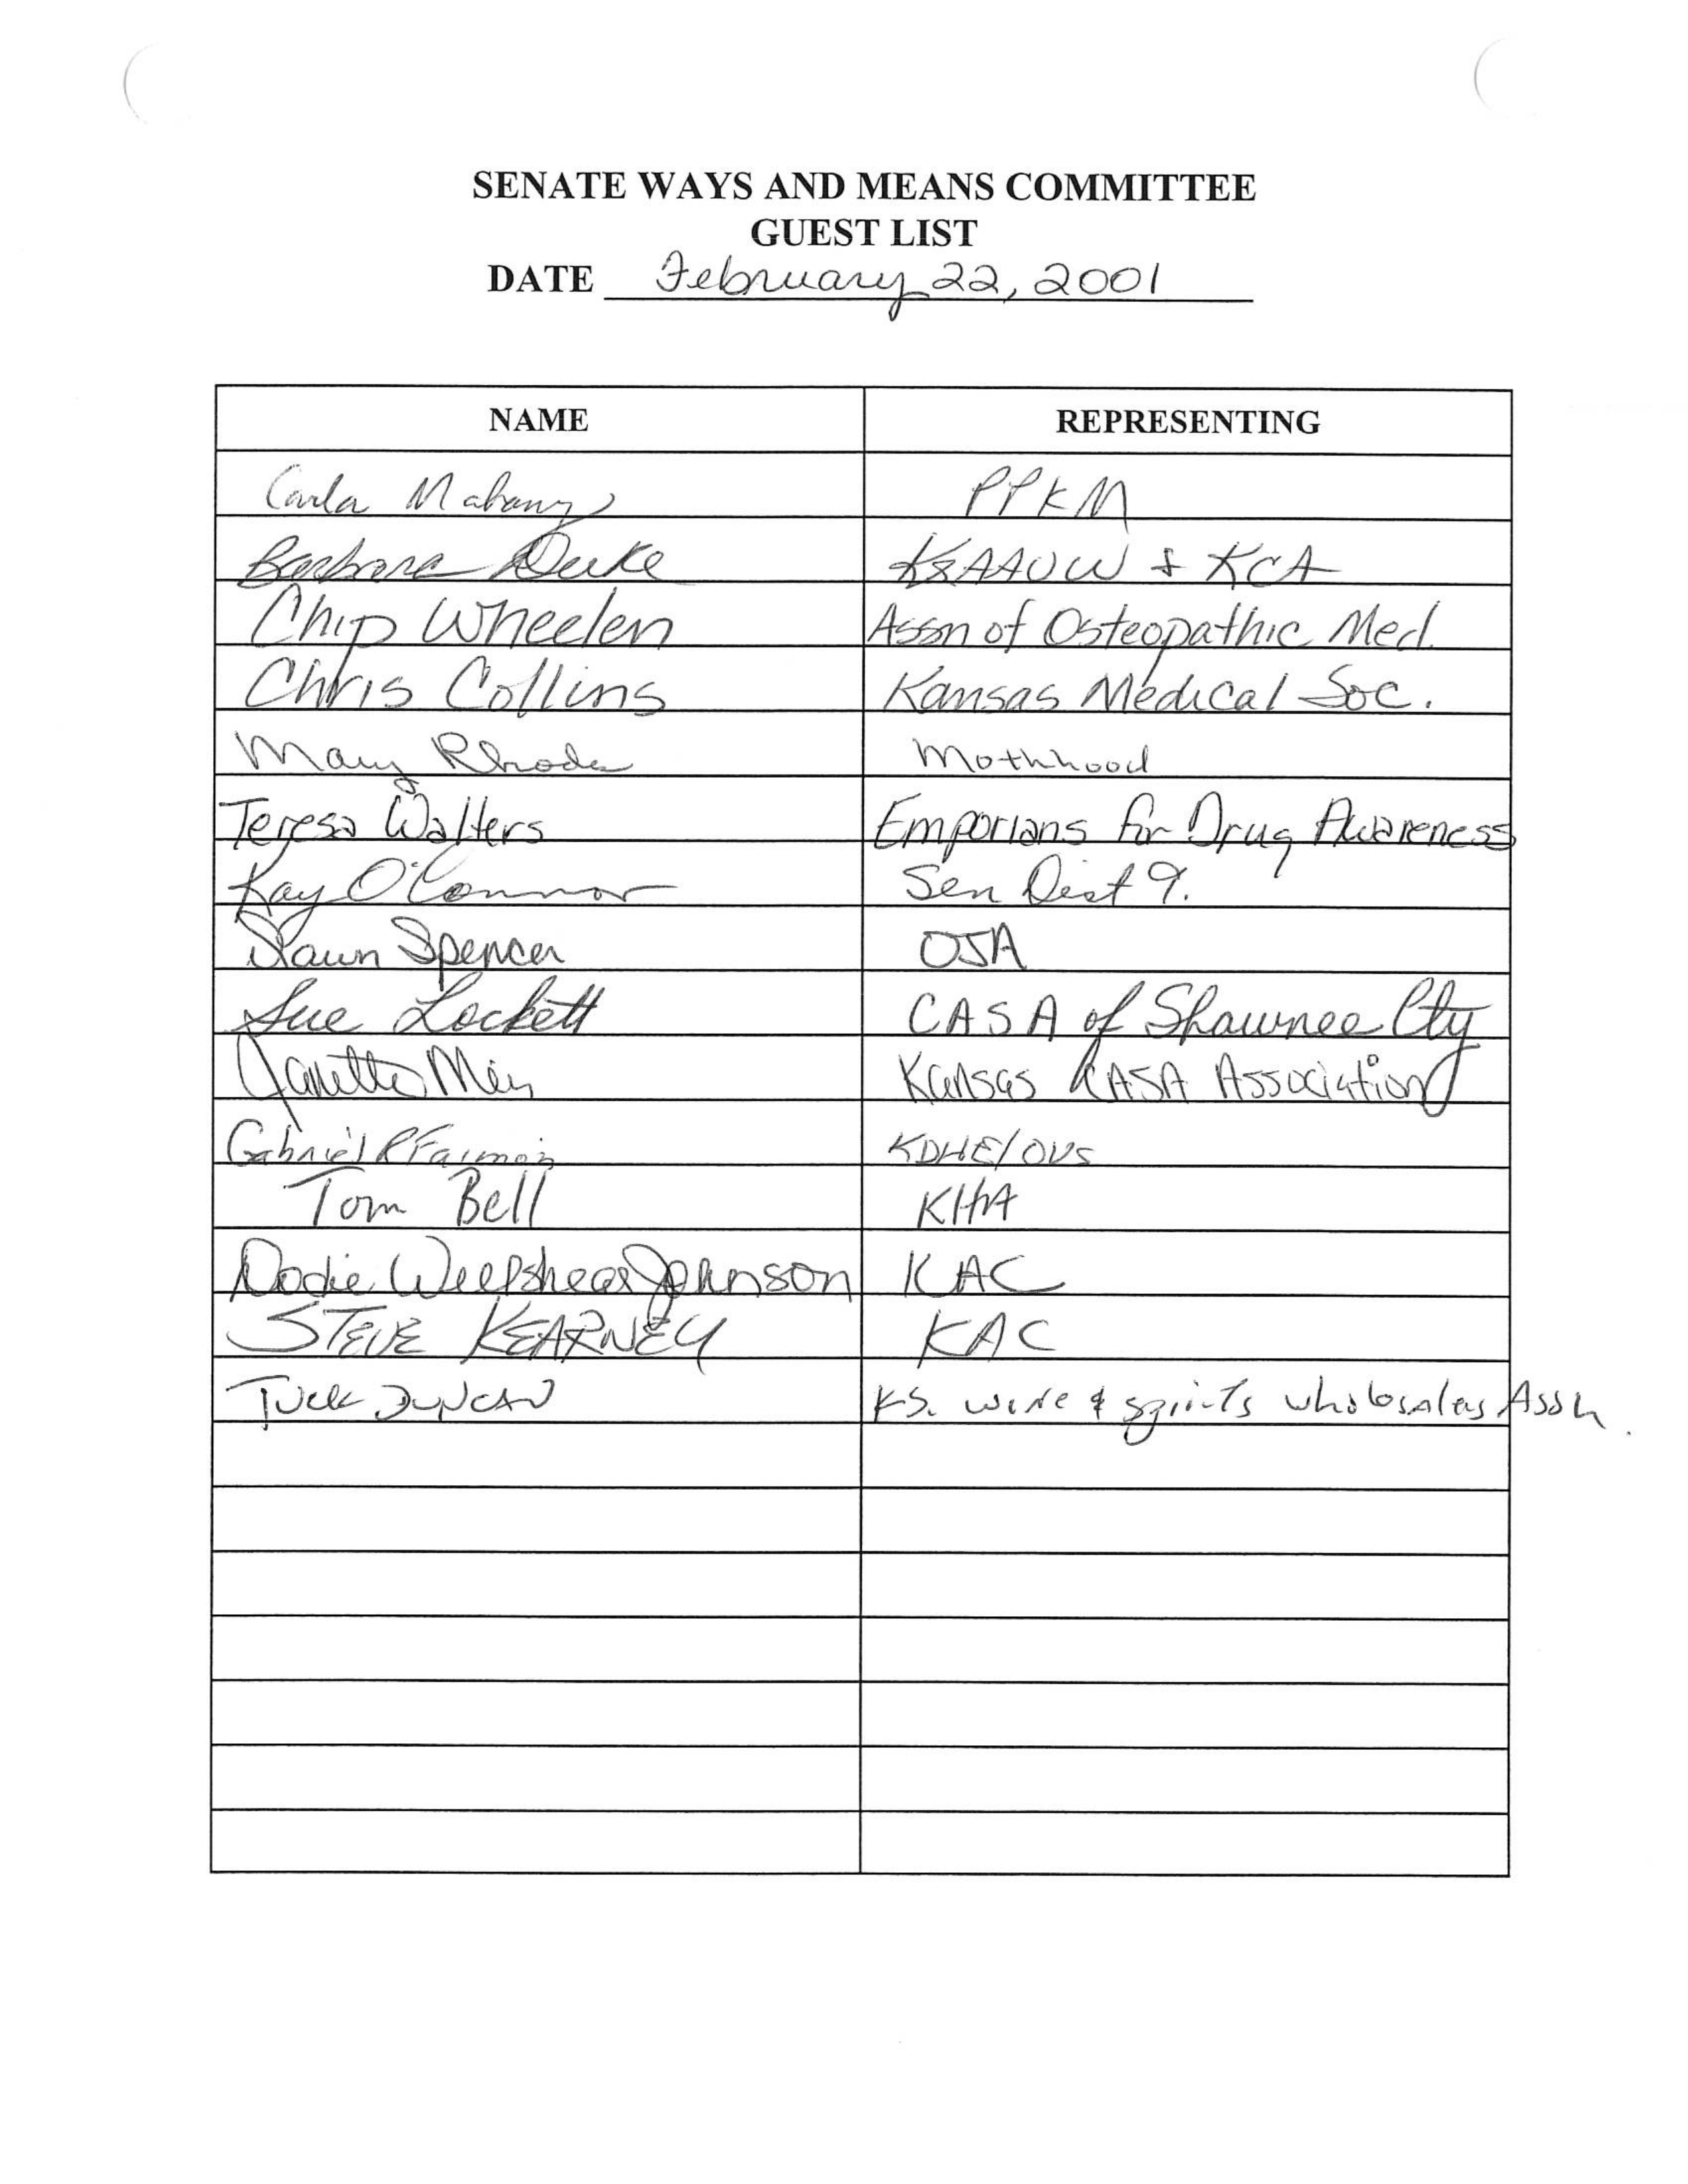 SENATE WAYS AND MEANS COMMITTEE
GUEST LIST
DATE February 22, 2001
NAME REPRESENTING
Carla Mahany PPKM
Barbara Duke KSAAUW & KCA
Chip Wheelen Assn of Osteopathic Med.
Chris Collins Kansas Medical Soc.
Mary Rhodes Mothhood
Teresa Walters Emporians for Drug Awareness
Kay O'Connor Sen Dist 9.
Dawn Spencer OJA
Sue Lockett CASA of Shawnee Cty
Janette Kansas CASA Association
Gabriel R KDHE/OVS
Tom Bell KHA
Dodie Johnson KAC
STEVE KEARNEY KAC
Tuck Duncan KS. wine & spirits wholesalers Assn